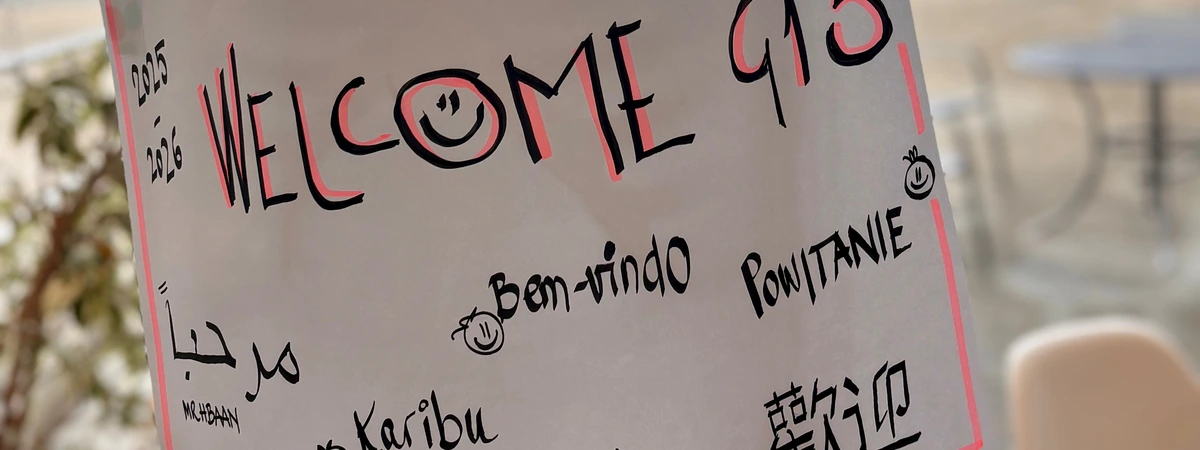 2025
-
2026
WELCOME G13
Bem-vindo
POWITANIE
مرحباً
MRHBAAN
Karibu
歡迎